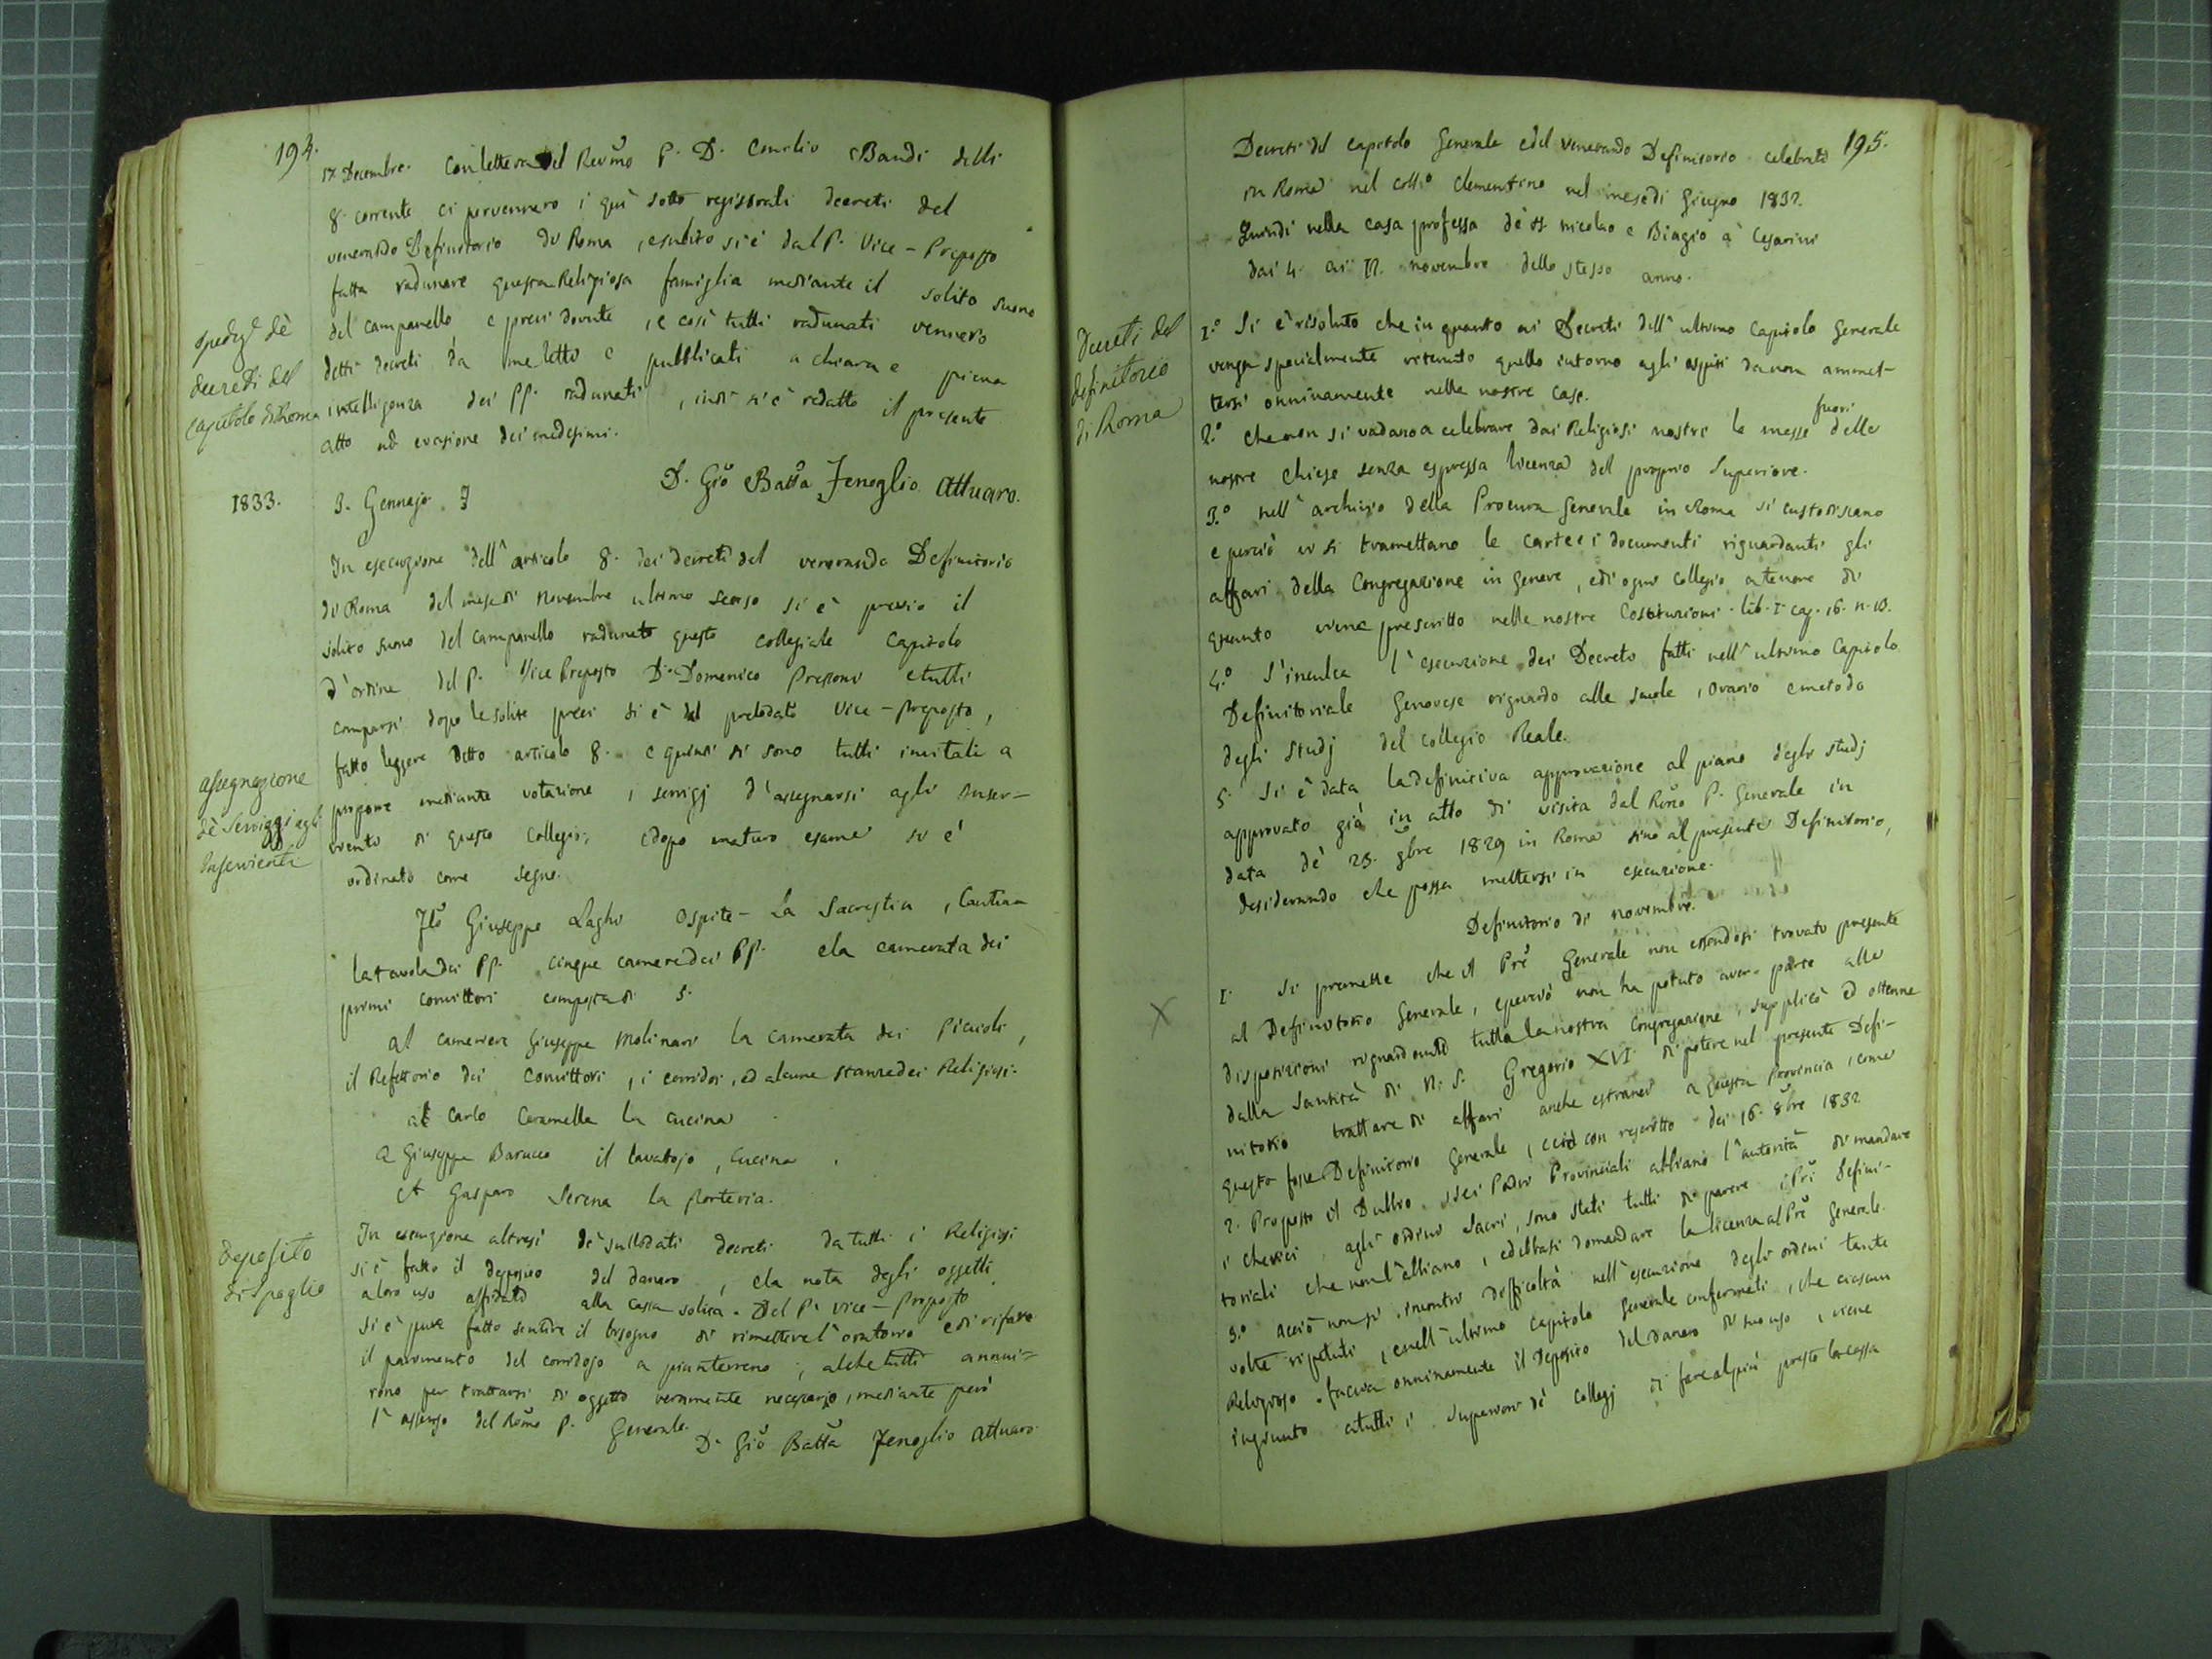 194.
17. Decembre. Con lettera del Rev͂mo P. D. Emilio Baudi delli
8. corrente ci pervennero i quì sotto registrati decreti del
venerando Definitorio di Roma, e subito si è dal P. Vice-Preposto
fatta radunare questa Religiosa famiglia mediante il solito suono
del campanello e preci dovute, e così tutti radunati vennero
detti decreti da me letti e pubblicati a chiara e piena
intelligenza dei PP. radunati, indi si è redatto il presente
atto ad evasione dei medesimi.
D. Gio͂ Batt͂a Fenoglio Attuaro.
decreti del
capitolo di Roma
1833.
3. Gennajo
In esecuzione dell'articolo 8. dei decreti del venerando Definitorio
di Roma del mese di Novembre ultimo scorso si è previo il
solito suono del campanello radunato questo collegiale Capitolo
d'ordine del P. Vice Preposto D. Domenico Pressoni e tutti
comparsi dopo le solite preci si è dal prelodato Vice-Preposto,
fatto leggere detto articolo 8. e quindi si sono tutti invitati a
proporre mediante votazione i servigj d'assegnarsi agli Inser-
vienti di questo Collegio; e dopo maturo esame si è
ordinato come segue.
assegnazione
dè Serviggi agli
Inservienti
Giuseppe Laghi Ospite - La Sacrestia, Cantina
la tavola dei PP. cinque camere dei PP. e la camerata dei
primi convittori composta di 5.
Al cameriere Giuseppe Molinari la camerata dei Piccioli,
il Refettorio dei Convittori, i corridoi, ed alcune stanze dei Religiosi.
a Carlo Caramella la cucina
a Giuseppe Barucco il lavatojo, cucina.
A Gasparo Serena la Porteria.
deposito
di Spoglio
In esecuzione altresì de' sullodati decreti da tutti i Religiosi
si è fatto il deposito del danaro, e la nota degli oggetti
a loro uso affidati alla cassa solita. Del P. Vice-Preposto
si è pure fatto sentire il bisogno di rimettere l'oratorio e di rifare
il pavimento del corridojo a pianterreno; al che tutti annui-
rono per trattarsi di oggetto veramente necessario, mediante però
l'assenso del Rev͂mo P. Generale.
D. Gio͂ Batt͂a Fenoglio Attuaro
195.
Decreti del Capitolo Generale e del venerando Definitorio celebrati
in Roma nel Coll.o Clementino nel mese di Giugno 1832.
Quindi nella casa professa de' SS. Nicolao e Biagio a' Cesarini
dai 4. ai 12. novembre dello stesso anno.
Decreti del
definitorio
di Roma
1.o Si è risoluto che in quanto ai Decreti dell'ultimo Capitolo Generale
venga specialmente ritenuto quello intorno agli ospiti da non ammet-
tersi onninamente nelle nostre case.
2.o Che non si vadano a celebrare dai Religiosi nostri le messe fuori delle
nostre Chiese senza espressa licenza del proprio Superiore.
3.o Nell'archivio della Procura Generale in Roma si custodiscano
e perciò ivi si tramettano le carte e i documenti riguardanti gli
affari della Congregazione in genere, e di ogni Collegio a tenore di
quanto viene prescritto nelle nostre Costituzioni. lib. I. cap. 16. n. 10.
4.o S'inculca l'esecuzione dei Decreti fatti nell'ultimo Capitolo
Definitoriale Genovese riguardo alle scuole, orario e metodo
degli studj del Collegio Reale.
5. Si è data la definitiva approvazione al piano degli studj
approvato già in atto di visita dal R͂mo P. Generale in
data de' 25. 9bre 1829 in Roma sino al presente Definitorio,
desiderando che possa mettersi in esecuzione.
Definitorio di novembre.
X
1. Si premette che il Pr͂e Generale non essendosi trovato presente
al Definitorio Generale, e perciò non ha potuto aver parte alle
disposizioni riguardanti tutta la nostra Congregazione, supplicò ed ottenne
dalla Santità di N. S. Gregorio XVI di potere nel presente Defi-
nitorio trattare di affari anche estranei a questa Provincia, come
questo fosse Definitorio Generale, e ciò con rescritto dei 16. 8bre 1832.
2. Proposto il Dubbio se i Padri Provinciali abbiano l'autorità di mandare
i chierici agli ordini sacri, sono stati tutti di parere i Pr͂i Defini-
toriali che non l'abbiano, e debbasi domandare la licenza al Pr͂e Generale.
3.o Acciò non si incontri difficoltà nell'esecuzione degli ordini tante
volte ripetuti, e nell'ultimo Capitolo Generale confermati, che ciascun
Religioso faccia onninamente il Deposito del danaro di suo uso, viene
ingiunto a tutti i Superiori de' Collegj di fare al più presto la cassa